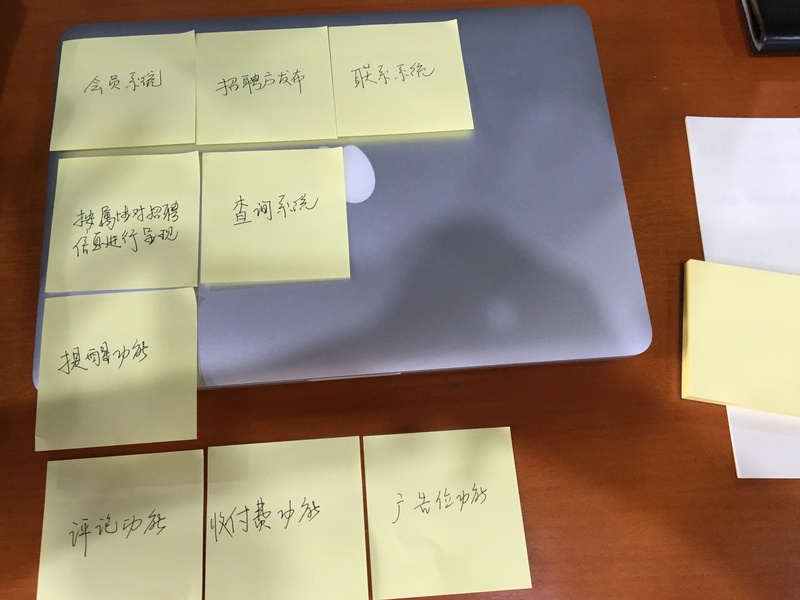 会员系统
招聘方发布
联系系统
按属性对招聘
信息进行呈现
查询系统
提醒功能
评论功能
收付费功能
广告位功能